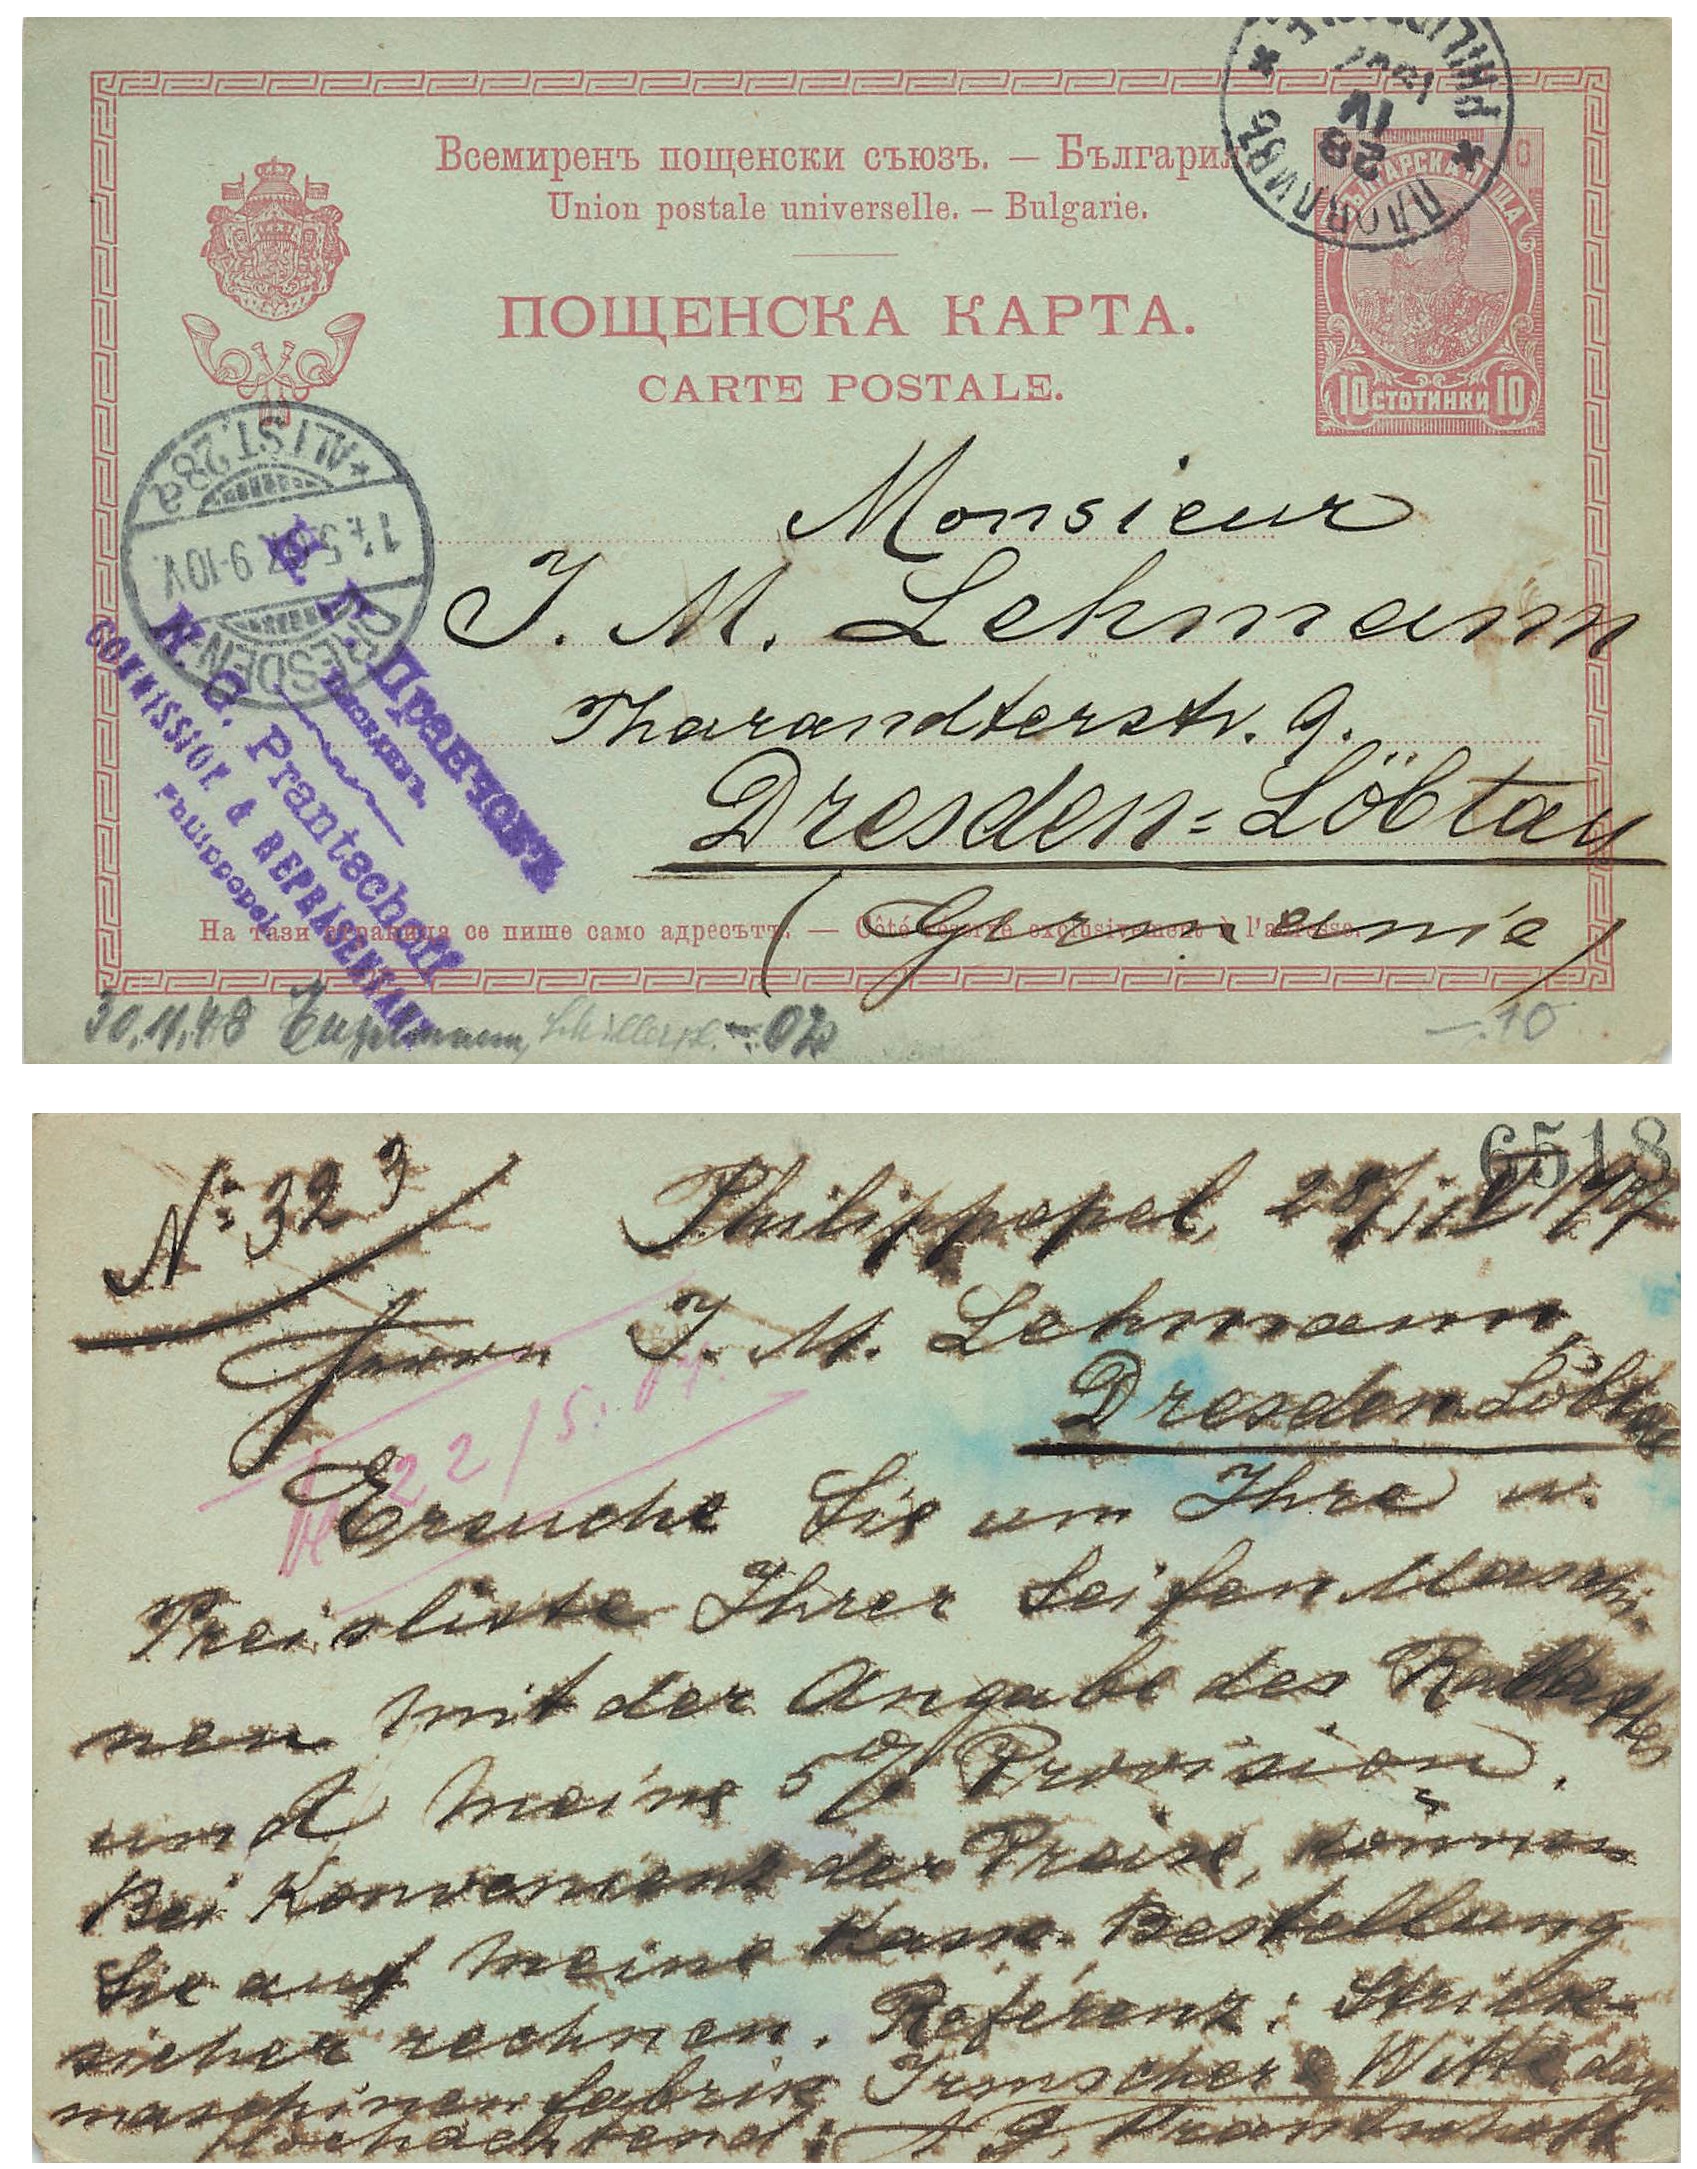 Всемиренъ пощенски съюзъ. — България
Union postale universelle. — Bulgarie.
ПОЩЕНСКА КАРТА.
CARTE POSTALE.
ПЛОВДИВЪ
28 IV
БЪЛГАРСКА ПОЩА
10 СТОТИНКИ 10
* ALTST. 28 a
5.07. 9-10 V.
DRESDEN-
Monsieur
J. M. Lehmann
Tharandterstr. 9.
Dresden=Löbtau
(Germanie)
Г. Пранчовъ
Пловдивъ.
N. G. Prantschoff
COMMISSION & REPRÄSENTANT
Philippopel
На тази страница се пише само адресътъ. — Côté réservé exclusivement à l'adresse.
30.11.48 -.02
-.10
6518
No 323
Philippopel, 28/IV/07
Herrn J. M. Lehmann,
Dresden Löbtau
22/5.07.
Ersuche Sie um Ihre u.
Preisliste Ihrer Seifen Maschi-
nen mit der Angabe des Rabattes
und meine 5% Provision.
Bei Konvenienz der Preise, können
Sie auf meine Kom. Bestellung
sicher rechnen. Referenz: Strick-
maschinenfabrik Irmscher & Witte
Hochachtend: N G. Prantschoff